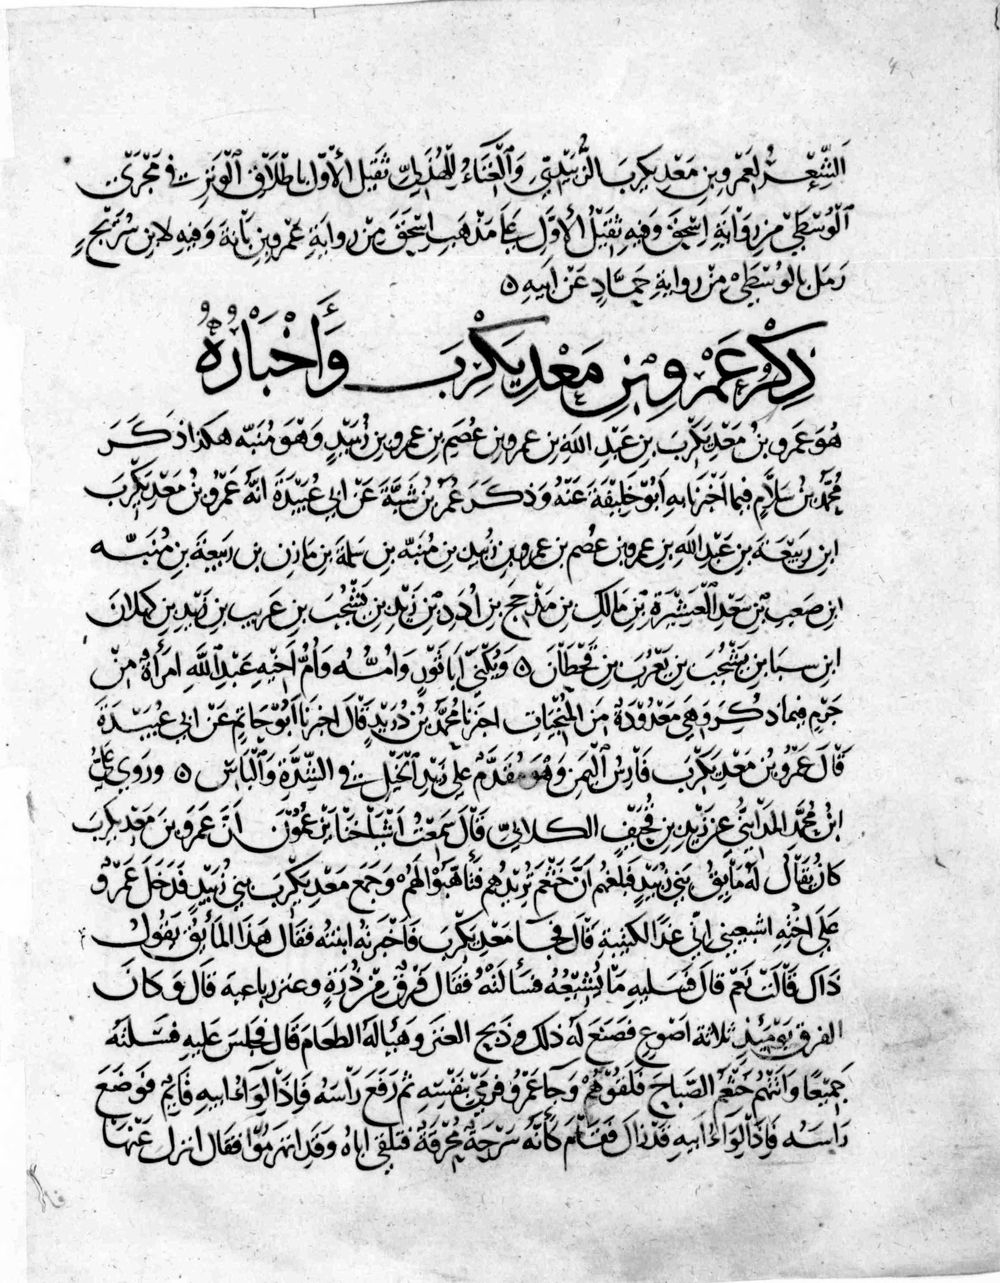 الشِّعْرُ لِعَمْرِو بنِ مَعْدِيكَرِبَ الزُّبَيْدِيّ وَالْغِنَاءُ لِلْهُذَلِيّ ثَقِيل الأوّل باطْلاَقِ الْوَتَرِ فِي مَجْرَى
الْوُسْطَى مِنْ رِوَايَةِ إسْحَقَ وَفِيهِ ثَقِيلُ الأوَّلِ عَلَى مَذْهَبِ إسْحَقَ مِنْ رِوَايَةِ عَمْرِو بنِ بَانَةَ وَفِيهِ لابنِ سُرَيْجٍ
رَمَل بِالوُسْطَى مِنْ رِوايةِ حَمَّادٍ عَنْ أبيهِ ه
ذِكْرُ عَمْرِو بْنِ مَعْدِيكَرِبَ وَأَخْبَارُهُ
هُوَ عَمرو بنُ مَعْدِيكَرِبَ بنِ عَبْدِ اللهِ بنِ عمرو بنِ عُصَيْمِ بنِ عمرو بنِ زُبَيْدٍ وَهُوَ مُنَبّه هكذا ذَكَرَ
مُحَمّد بنُ سَلاَّمٍ فيما أخْبَرَنا بهِ أبُو خَلِيفَةَ عَنْهُ وَذكَرَ عُمَرُ بنُ شَبَّةَ عَنْ أبي عُبَيْدَةَ أنّهُ عَمْرُو بنُ مَعْدِيكَرِبَ
ابنِ رَبِيْعَةَ بنِ عَبْدِ اللهِ بنِ عَمرو بنِ عُصْم بنِ عمرو بنِ زُبَيْدِ بنِ مُنَبّه بنِ سَلَمَةَ بنِ مَازِن بنِ رَبِيعَةَ بنِ مُنَبّه
ابنِ صَعبِ بْنِ سَعْدِ الْعَشِيْرَةِ بْنِ مَالكِ بنِ مَذْحِج بنِ أُدَدِ بْنِ زَيْدِ بنِ يَشْجُبَ بنِ عَرِيبِ بنِ زَيْدِ بنِ كَهلانَ
ابنِ سبَا بنِ يَشْجُبَ بنِ يَعْرُبَ بنِ قَحْطَانَ ه وَيُكْنَى أبَا ثَوْرٍ وَأُمُّهُ وَأُمّ أخِيهِ عَبْدِ اللهِ امرَأَةٌ مِنْ
جَرْمٍ فيما ذُكِرَ وَهِيَ مَعْدُودَةٌ مِنَ الْمُنْجِبَاتِ اخبرَنا مُحَمَّدُ بنُ دُرَيْدٍ قَالَ اخبرنا أبُو حَاتِم عَنْ أبي عُبَيْدَةَ
قَالَ عَمْرُو بْنُ مَعْدِيكَرِبَ فَارِسُ الْيَمَنِ وَهُوَ مُقَدَّم عَلَى زَيْدِ الْخَيْلِ فِي الشِّدَّةِ وَالْبَأس ه وروى عَلِيّ
ابنُ مُحَمَّد المَدَايني عَنْ زَيْدِ بنِ قُحَيْفٍ الكلابيّ قَالَ سَمِعْتُ أشْيَاخَنَا يَزْعُمُوْنَ أنَّ عَمرو بنَ مَعْدِيكرِبَ
كانَ يُقَالُ لَهُ مَايِقُ بَنِي زُبَيْدٍ فَبَلَغَهُم أنَّ خَثْعَم تُرِيْدُهم فَتَأَهّبُوا لَهُمْ وَجَمَعَ مَعْدِيكَرِبَ بني زُبَيْدٍ فَدَخَلَ عَمْرٌو
عَلى أُخْتِهِ اشبِعيني إنّي غَدًا لكَتِيْبَة قَالَ فَجَا مَعْدِيكَرِبَ فَأَخْبَرَتْهُ ابنَتُهُ فقال هَذَا المَائِقُ يَقُولُ
ذَاكَ قَالَتْ نَعَمْ قالَ فَسَلِيهِ مَا يُشْبِعُهُ فَسَأَلَتْهُ فَقَالَ فَرَقٌ مِنْ ذُرَةٍ وعَنز رباعية قالَ وَكانَ
الفرق يَوْمَئِذٍ ثلاثة اصْوُعٍ فَصَنَعَ لَهُ ذلك وذَبحَ العنزَ وَهَيّأ لَهُ الطعَامَ قَالَ فَجَلسَ عَلَيهِ فَسَلَتَهُ
جَمِيْعًا وَاتَتْهُم خَثْعَمُ الصَّبَاحَ فَلَقُوْهُمْ وَجَا عَمْرُو فَرَمَى بنَفْسِهِ ثمّ رَفَعَ رَأسَهُ فَاذَا لِوَاءُ ابِيهِ قَايم فوَضَعَ
رَاسَهُ فَإذَا لِوَاءُ أبِيهِ قَدْ زَالَ فَقَامَ كَأنّهُ سَرْحَةٌ مُحْرَقَةٌ فَتَلَقى اباهُ وَقَدِ انهَزَمُوا فقال انزل عَنْهَا